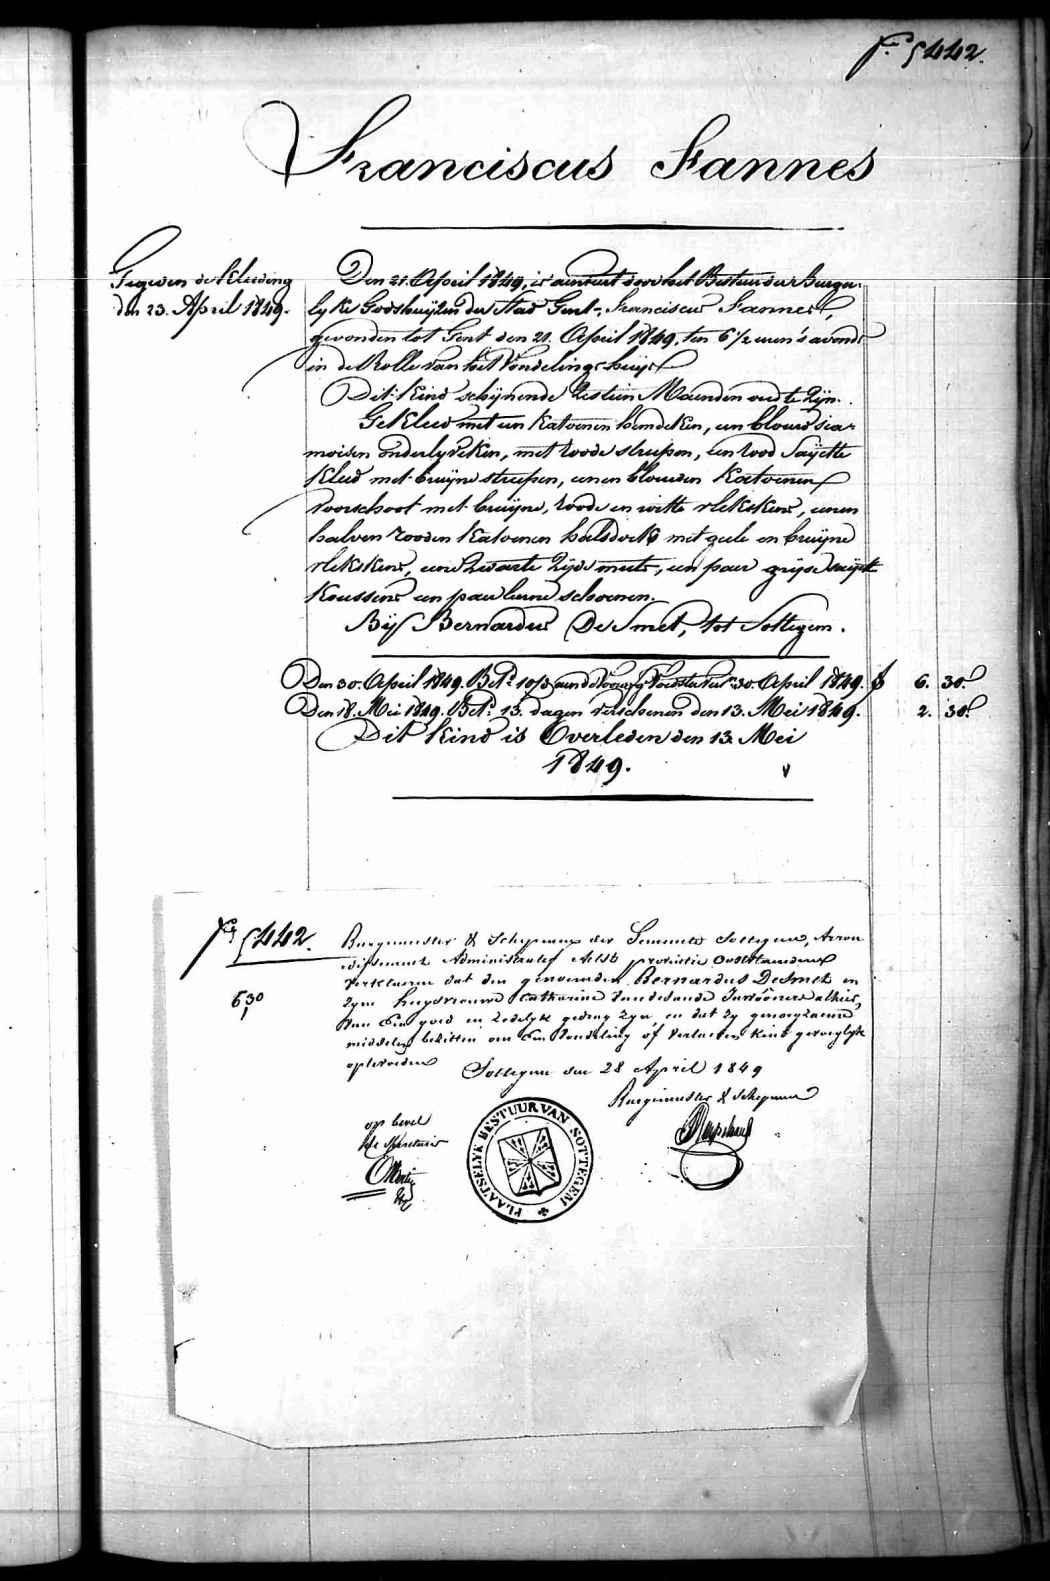 Fº 5442.
Franciscus Fannes
Gegeven de Kleeding
den 23. April 1849.
Den 21. April 1849, is aenveert door het Bestuur der Burger-
lyke Godshuyzen der Stad Gent, Franciscus Fannes,
gevonden tot Gent den 21. April 1849, ten 6 1/2 uren 's avonds
in de Rolle van het Vondelingshuys.
Dit Kind schynende Zestien Maenden oud te Zyn.
Gekleed met een Katoenen hemdeken, een blouw sia-
moisen onderlyveken, met roode streepen, een rood Sayette
Kleed met bruyne streepen, eenen blouwen Katoenen
voorschoot met bruyne, roode en witte vlekskens, eenen
halven rooden Katoenen halsdoek met geele en bruyne
vlekskens, eene Zwarte Zyde muts, een paer gryse sayette
Koussens een paer leere schoenen.
By Bernardus De Smet, tot Sottegem.
Den 30. April 1849. Betd. 10 f 30. April 1849. 6. 30.
Den 18. Mei 1849. Betd. 13. dagen verschenen den 13. Mei 1849. 2. 30.
Dit Kind is Overleden den 13. Mei
1849.
Fº 5442.
6,30
Burgemeester & Schepenen der Gemeente Sottegem, Arron
dissement Administratief Aelst provintie Oostvlaenderen
verklaeren dat den genoemden Bernardus DeSmet en
zyne huysvrouwe Catharina Vandesande Inwooners alhier,
van een goed en zedelyk gedrag zyn en dat zy genoegzaeme
middelen bezitten om een Vondeling of verlaeten Kind gevoeglyk
optevoeden
Sottegem den 28 April 1849
Burgemeester & Schepenen
op bevel
de Secretaris
PLAATSELYK BESTUUR VAN SOTTEGEM